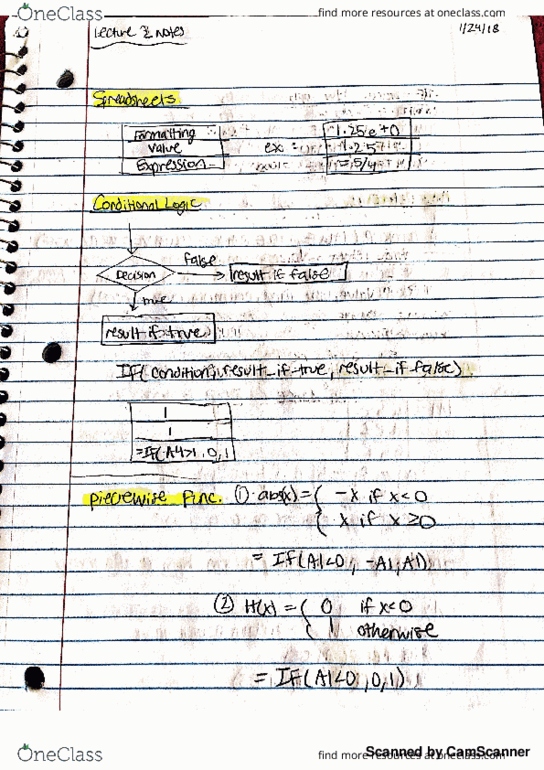 OneClass
find more resources at oneclass.com
Lecture 2 notes
1/24/18
Spreadsheets
Formatting
Value
Expression
ex:
1.25e+0
1.25
=5/4
Conditional Logic
Decision
false
result if false
true
result if true
If( condition, result_if_true, result_if_false)
1
1
=If(A4>1,0,1)
piecewise func. ① abs(x)={ -x if x<0
{ x if x≥0
= If(A1<0, -A1, A1)
② H(x) = { 0 if x<0
{ 1 otherwise
= If(A1<0,0,1)
OneClass
find more resources at oneclass.com
Scanned by CamScanner